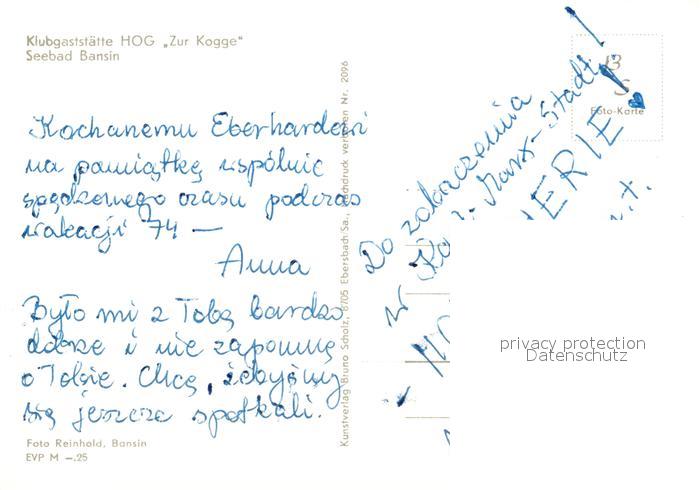 Klubgaststätte HOG „Zur Kogge"
Seebad Bansin
Kochanemu Eberhardowi
na pamiątkę wspólnie
spędzonego czasu podczas
wakacji 74 —
Anna
Było mi z Tobą bardzo
dobrze i nie zapomnę
o Tobie. Chcę, żebyśmy
się jeszcze spotkali.
Foto Reinhold, Bansin
EVP M —.25
Kunstverlag Bruno Scholz, 8705 Ebersbach/Sa., Nachdruck verboten Nr. 2096
Do zobaczenia
w Karl-Marx-Stadt!
Foto-Karte
privacy protection
Datenschutz